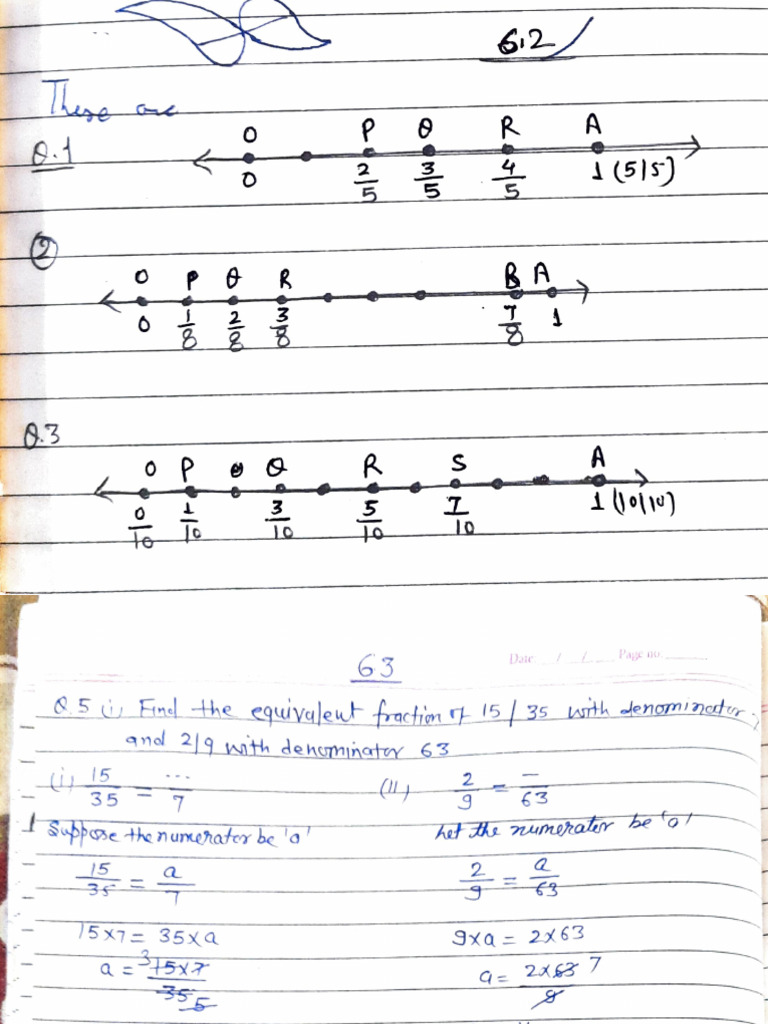 6.2
These are
Q.1 O P Q R A
0 2/5 3/5 4/5 1 (5/5)
② O P Q R B A
0 1/8 2/8 3/8 7/8 1
Q.3
O P Q R S A
0/10 1/10 3/10 5/10 7/10 1 (10/10)
63
Date / / Page no.
Q.5 (i) Find the equivalent fraction of 15/35 with denominator 7
and 2/9 with denominator 63
(i) 15/35 = .../7 (II) 2/9 = —/63
Suppose the numerator be 'a' Let the numerator be 'a'
15/35 = a/7 2/9 = a/63
15×7 = 35×a 9×a = 2×63
a = 3 15×7 / 35 5 a = 2×63 7 / 9